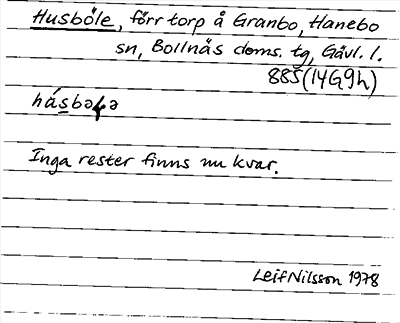 Husböle, förr torp å Granbo, Hanebo
sn, Bollnäs doms. tg, Gävl. l.
885(14G9h)
hásbəɫə
Inga rester finns nu kvar.
Leif Nilsson 1978